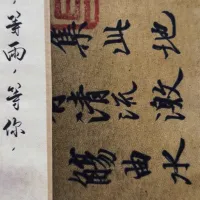 ，等雨，等你，
集此地
清流激
觴曲水